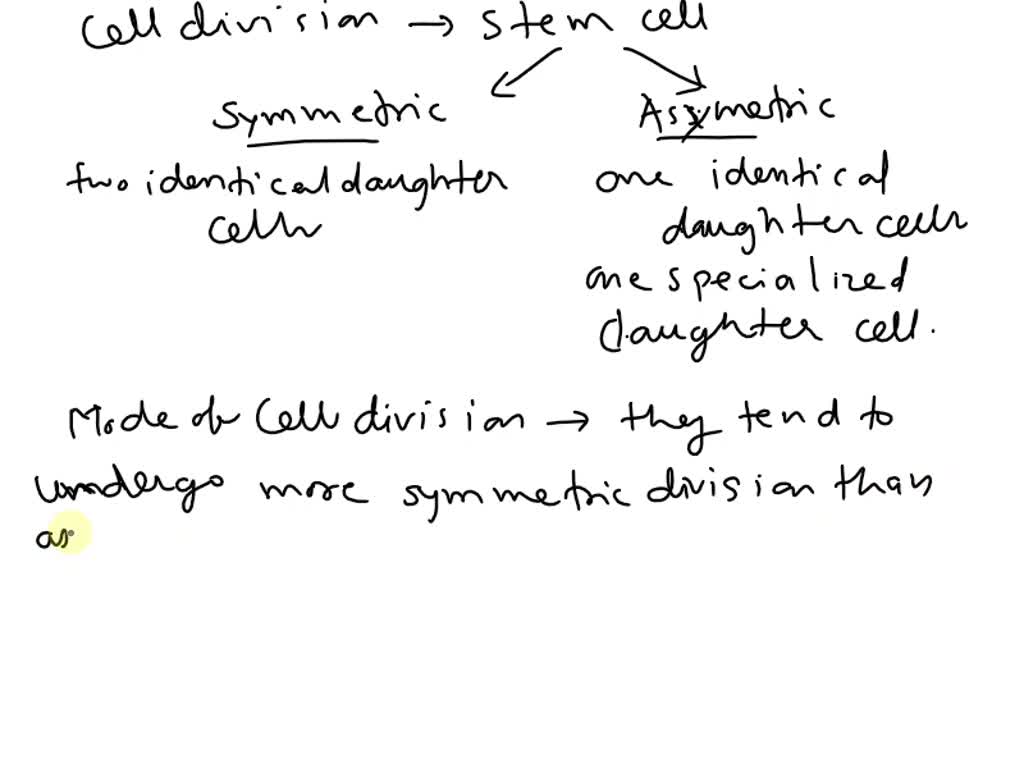 Cell division → stem cell
Symmetric
Asymetric
two identical daughter
cells
one identical
daughter cells
one specialized
daughter cell.
Mode of Cell division → they tend to
undergo more symmetric division than
as